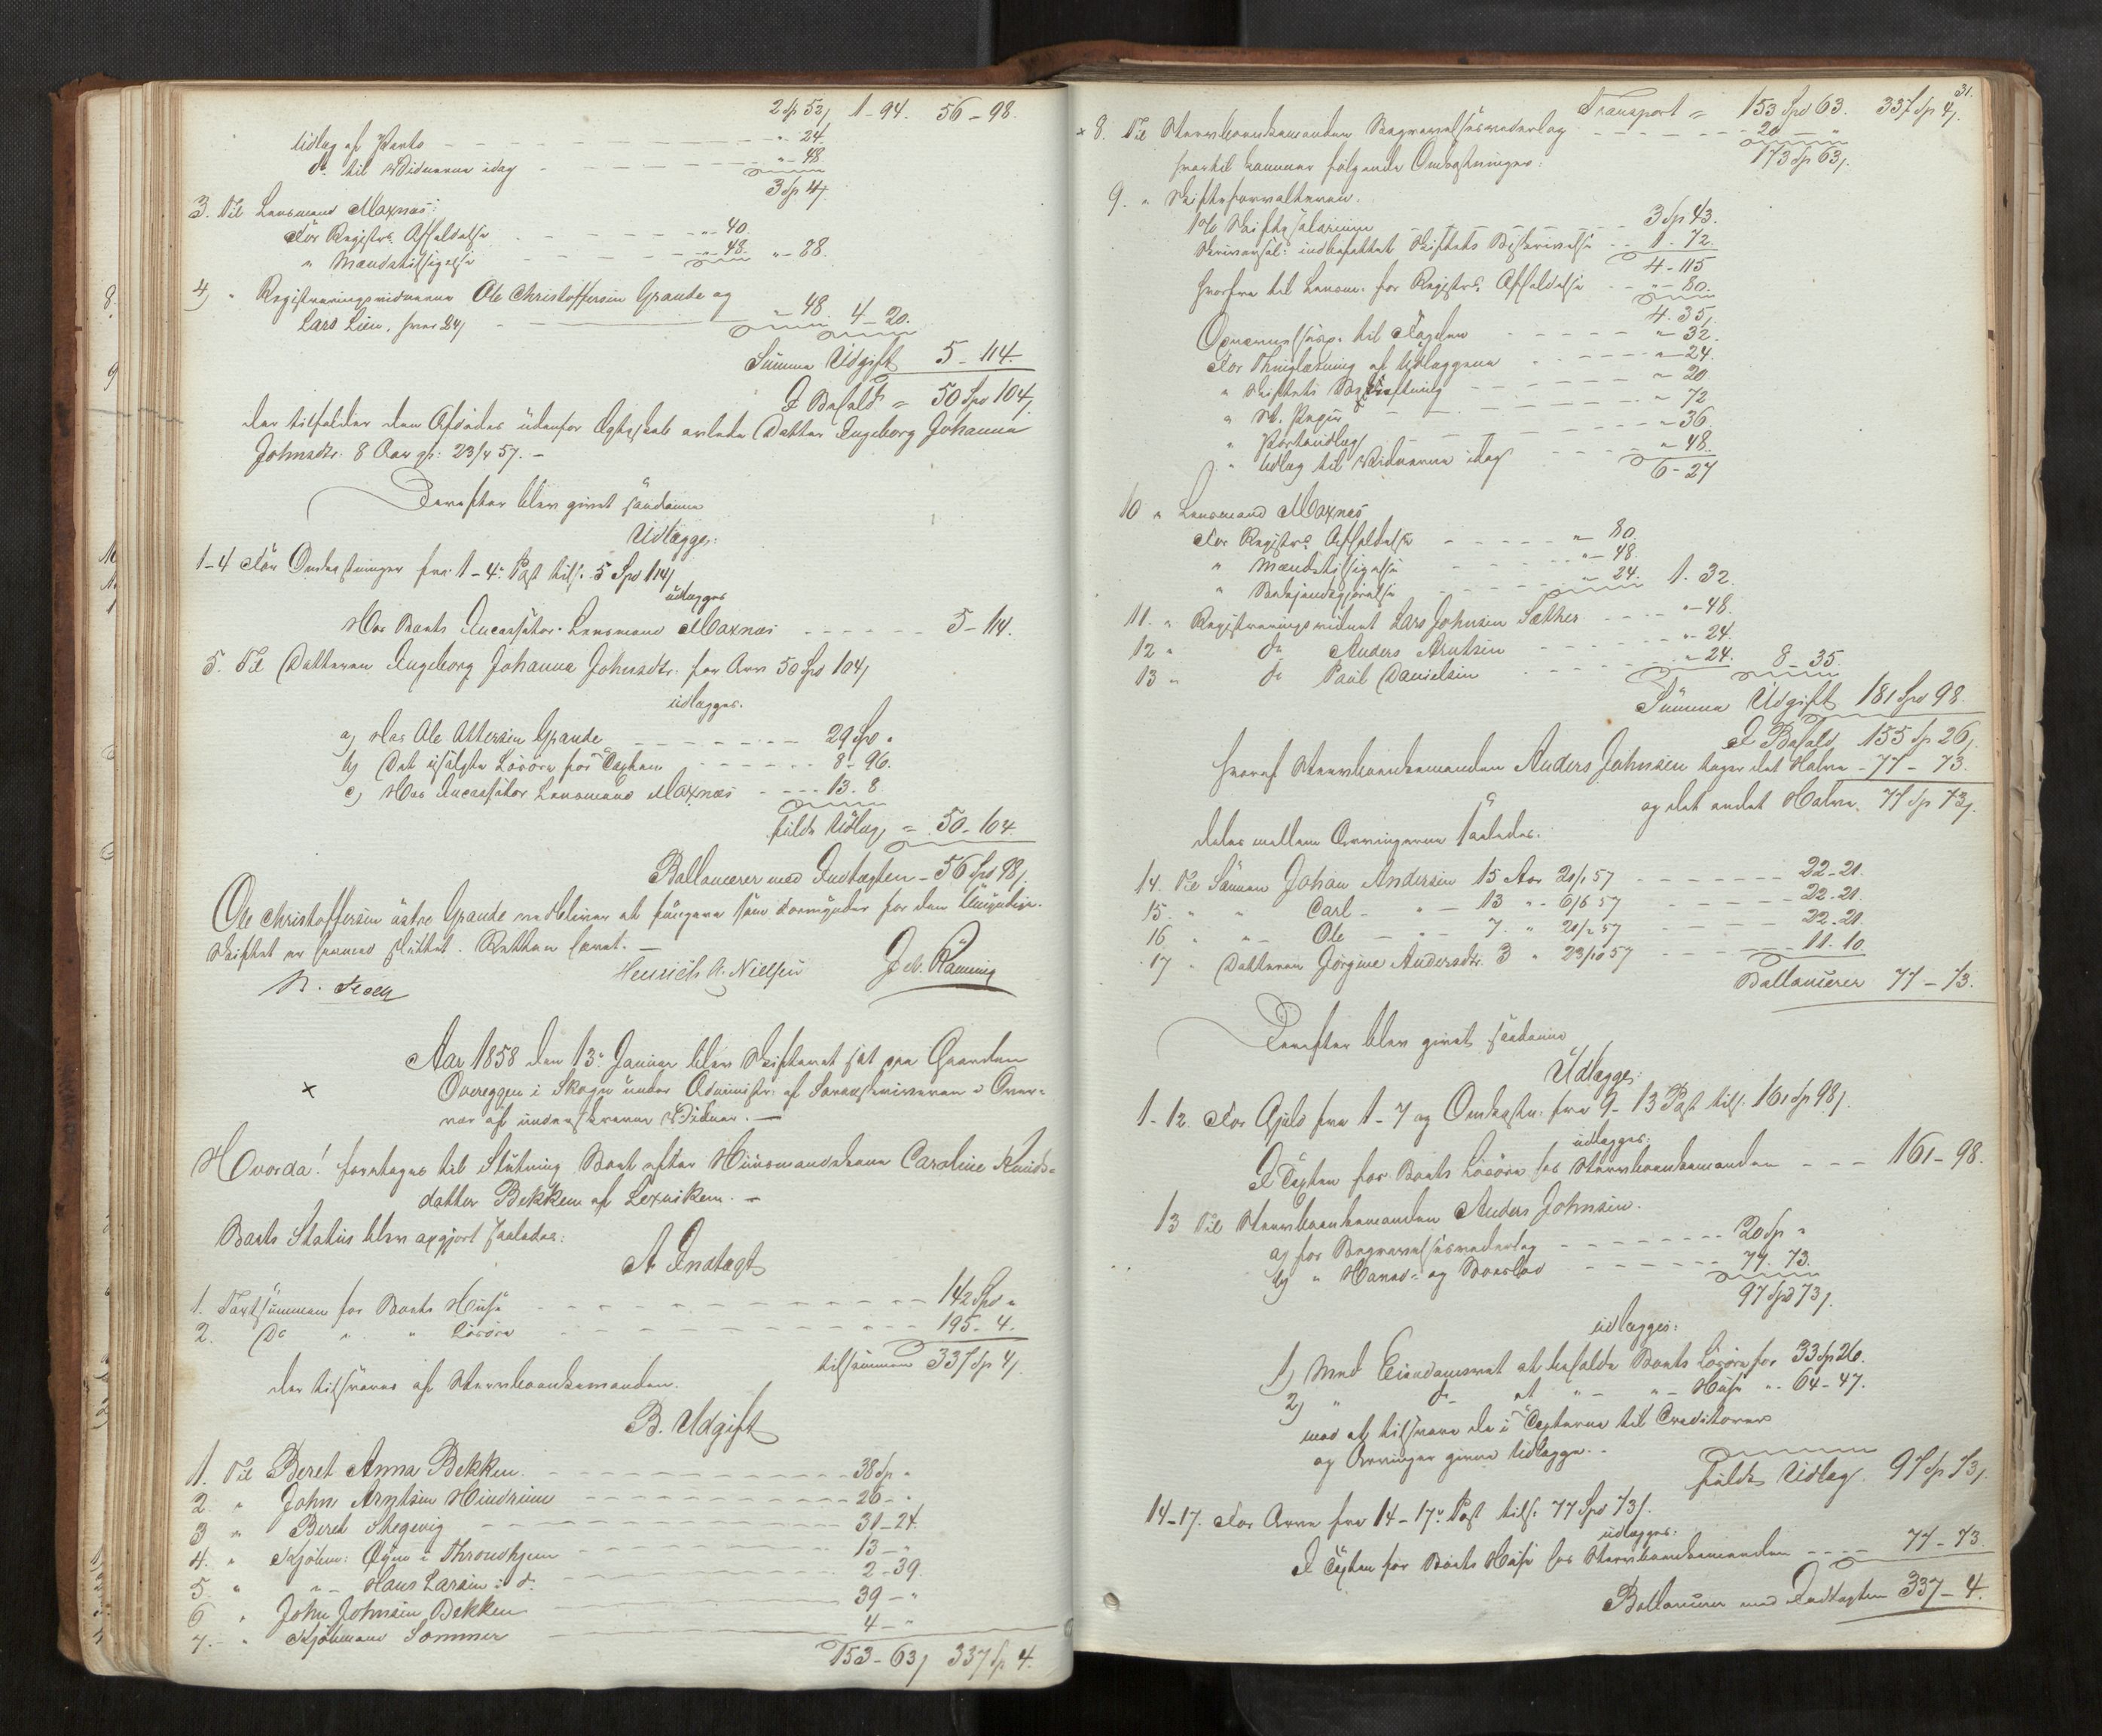 2 Sp 52 1-94. 56-98.
Udlæg af Porto " - 24.
do til Vidnerne idag " - 48
3 Sp 4
3. Til Lensmand Maxnæs:
For Registrs Afholdelse " - 40.
" Mændstilsigelse " - 48. " - 88.
4) " Registreringsvidnerne Ole Christoffersen Grande og
Lars Lien, hver 24 " - 48. 4-20.
Summa Udgift 5-114.
I Behold = 50 Spd 104
der tilfalder den Afdødes udenfor Ægteskab avlede Datter Ingeborg Johanna
Johnsdtr. 8 Aar gl. 23/4 57. -
Derefter blev givet saadanne
Udlægge:
1-4 For Omkostninger fra 1-4. Post tils. 5 Spd 114
udlægges
Hos Boets Incassator Lensmand Maxnæs 5-114.
5. Til Datteren Ingeborg Johanna Johnsdtr. for Arv 50 Spd 104
udlægges.
a) Hos Ole Ottersen Grande 29 Spd "
b) Det usolgte Løsøre for Taxten 8-96.
c) Hos Incassator Lensmand Maxnæs 13. 8.
fuldt Udlæg = 50-104.
Ballancerer med Indtægten - 56 Spd 98
Ole Christoffersen østre Grande vedbliver at fungere som Formynder for den Umyndige.
Skiftet er hermed sluttet. Retten hævet. -
Henrich A. Nielsen
Aar 1858 den 13. Januar blev Skifteret sat paa Gaarden
x Overeggen i Skogn under Administr. af Sorenskriveren i Over-
vær af underskrevne Vidner. -
Hvorda! foretoges til Slutning Boet efter Huusmandskone Caroline Knuds-
datter Bekken af Lexviken. -
Boets Status blev opgjort saaledes:
A Indtægt
1. Taxtsummen for Boets Huse 142 Spd "
2. Do " " Løsøre 195-4.
tilsammen 337 Sp 4
der tilsvares af Stervboenkemanden.
B. Udgift
1. Til Beret Anna Bekken. 38 Sp "
2. " John Arntsen Hindrum 26- "
3 " Beret Stegevig 31-24.
4. " Kjøbm: Øyen i Throndhjem 13- "
5. " " - Hans Larsen i do 2-39.
6 " John Johnsen Bekken 39- "
7. " Kjøbmand Sommer 4- "
153-63 337 Sp 4.
31.
Transport = 153 Spd 63. 337 Sp 4
x 8. Til Stervboenkemanden Begravelsesvederlag 20 - "
173 Sp 63
hvortil kommer følgende Omkostninger:
9. " Skifteforvalteren.
1% Skiftesalarium 3 Sp 43.
Skriversal: indbefattet Skiftets Beskrivelse 1-72.
4-115
hvorfra til Lensm. for Registrs Afholdelse " - 80.
4. 35
til Fogden " - 32.
For Thinglæsning af Udlæggene " - 24.
" Skiftets Bekræftning " - 20
" St. Papir " - 72
" Portoudlæg " - 36.
" Udlæg til Vidnerne idag " - 48.
6-27
10 " Lensmand Maxnæs
For Registrs Afholdelse " - 80.
" Mændstilsigelse " - 48.
" Bekjendtgjørelse " - 24. 1. 32.
11. " Registreringsvidnet Lars Johnsen Sæther " - 48.
12 " do Anders Arntsen " - 24.
13 " do Paul Danielsen " - 24. 8-35.
Summa Udgift 181 Spd 98.
I Behold 155 Sp 26
hvoraf Stervboenkemanden Anders Johnsen tager det Halve - 77 - 73.
og det andet Halve, 77 Sp 73
deles mellem Arvingerne saaledes:
14. Til Sønnen Johan Andersen 15 Aar 21/1 57 22-21.
15. " " Carl - " - 13 " - 6/6 57 22-21.
16 " " - Ole - " - 7. " 21/2 57 22-21.
17 " Datteren Jørgine Andersdtr. 3 " 23/10 57 11-10.
Ballancerer 77-73.
Derefter blev givet saadanne
Udlægge:
1-12. For Gjæld fra 1-7 og Omkostn. fra 9-13 Post tils. 161 Sp 98
udlægges:
I Taxten for Boets Løsøre hos Stervboenkemanden 161-98.
13 Til Stervboenkemanden Anders Johnsen.
a) for Begravelsesvederlag 20 Sp "
b) " Hoved- og Boeslod 77. 73.
97 Spd 73
udlægges:
1) Med Eiendomsret at beholde Boets Løsøre for 33 Sp 26.
2) " do at " - " - Huse " 64-47.
mod at tilsvare de i Taxterne til Creditorer
og Arvinger givne Udlægge. -
fuldt Udlæg. 97 Sp 73
14-17. For Arv fra 14-17. Post tils. 77 Spd 73
udlægges:
I Taxten for Boets Huse hos Stervboenkemanden 77-73.
Ballancerer med Indtægten 337-4.